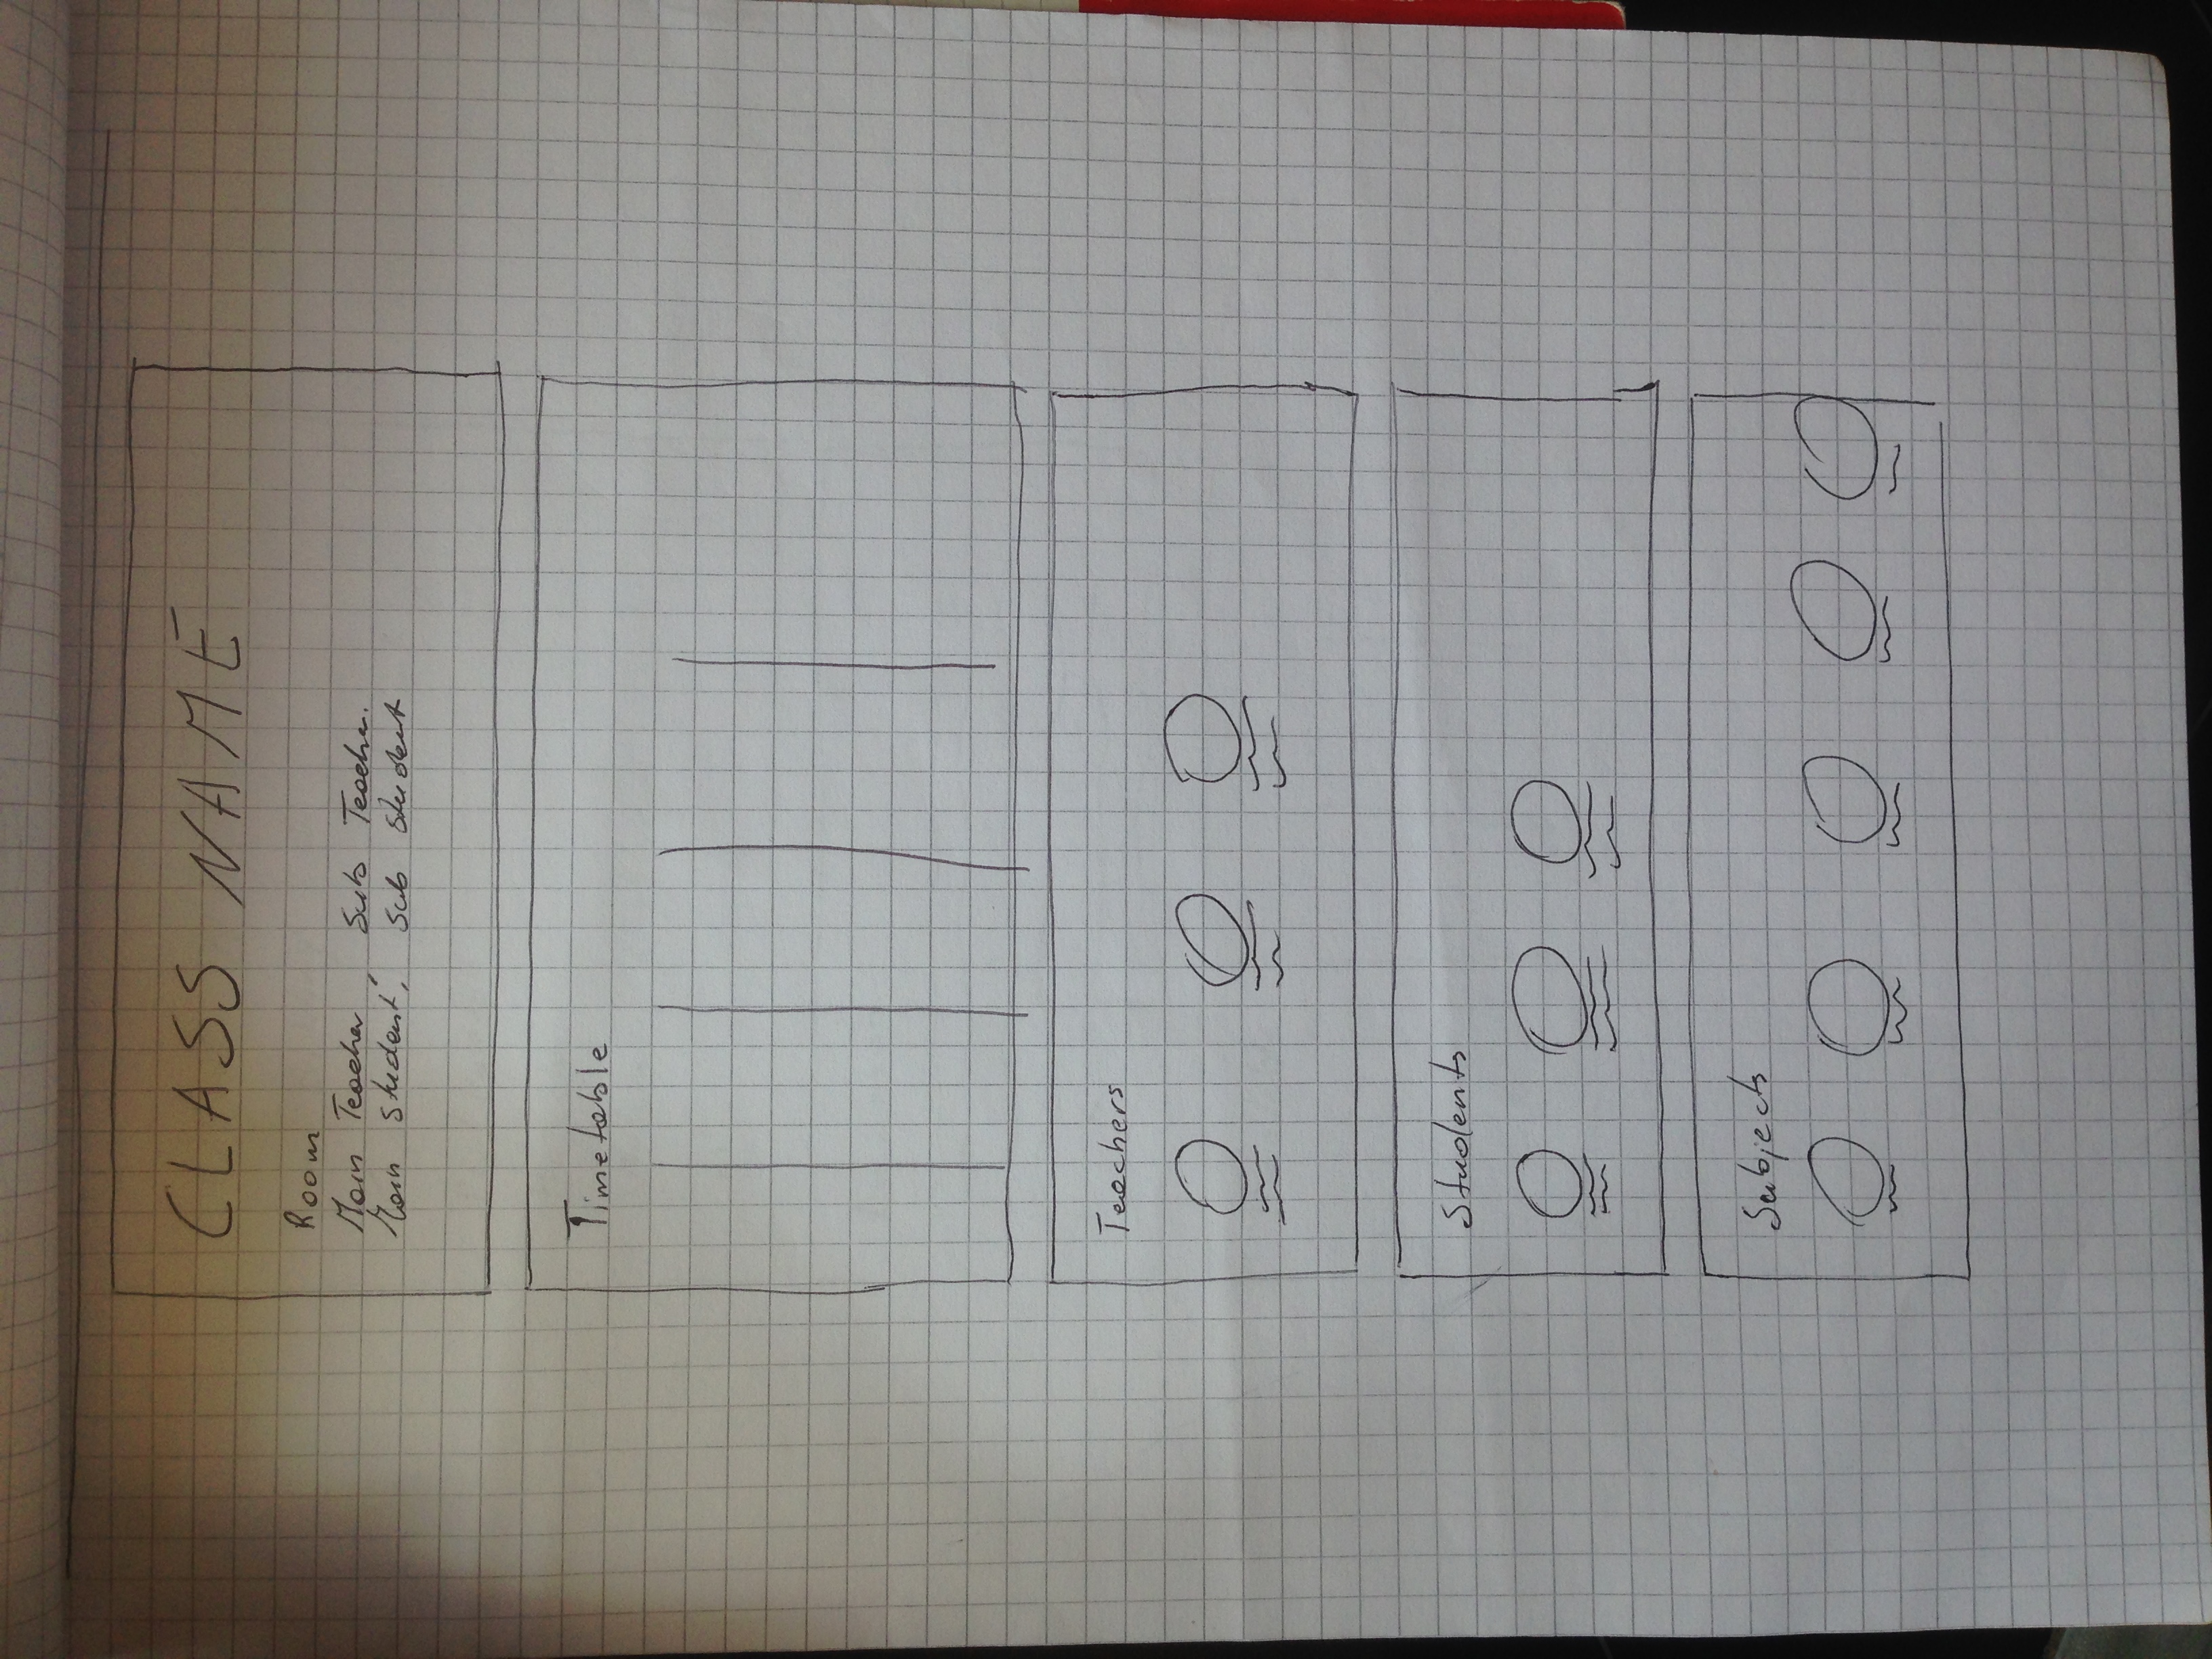 CLASS NAME
Room
Main Teacher, Sub Teacher.
Main Student, Sub Student
Timetable
Teachers
Students
Subjects